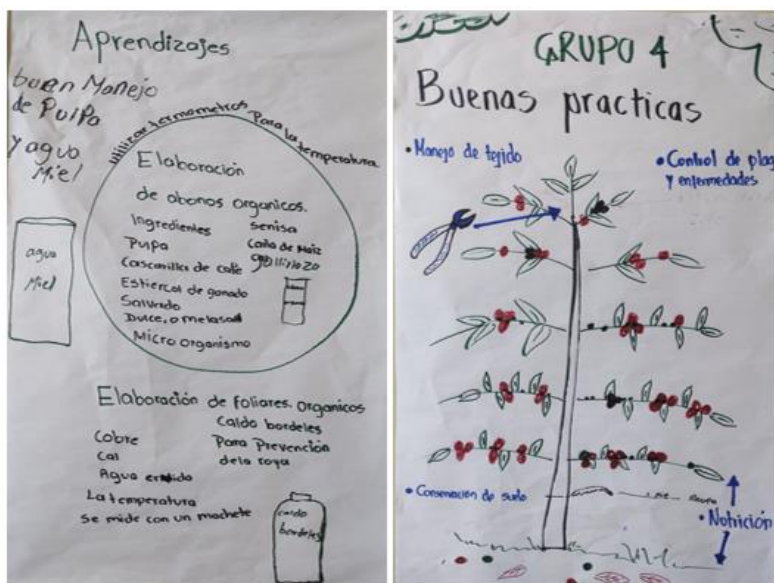 Aprendizajes
buen Manejo
de Pulpa
y agua
Miel
utilizar termometros Para la temperatura
Elaboración
de abonos organicos.
Ingredientes
Pulpa
Cascarilla de café
Estiercol de ganado
Salvado
Dulce, o melasa
Micro organismo
Senisa
Caña de Maiz
gallinaza
agua
Miel
Elaboración de foliares. Organicos
Cobre
Cal
Agua
La temperatura
Se mide con un machete
Caldo bordeles
Para Prevención
dela roya
caldo
bordeles
GRUPO 4
Buenas practicas
• Manejo de tejido
• Control de plag
y enfermedades
• Conservación de suelo
• Nutrición